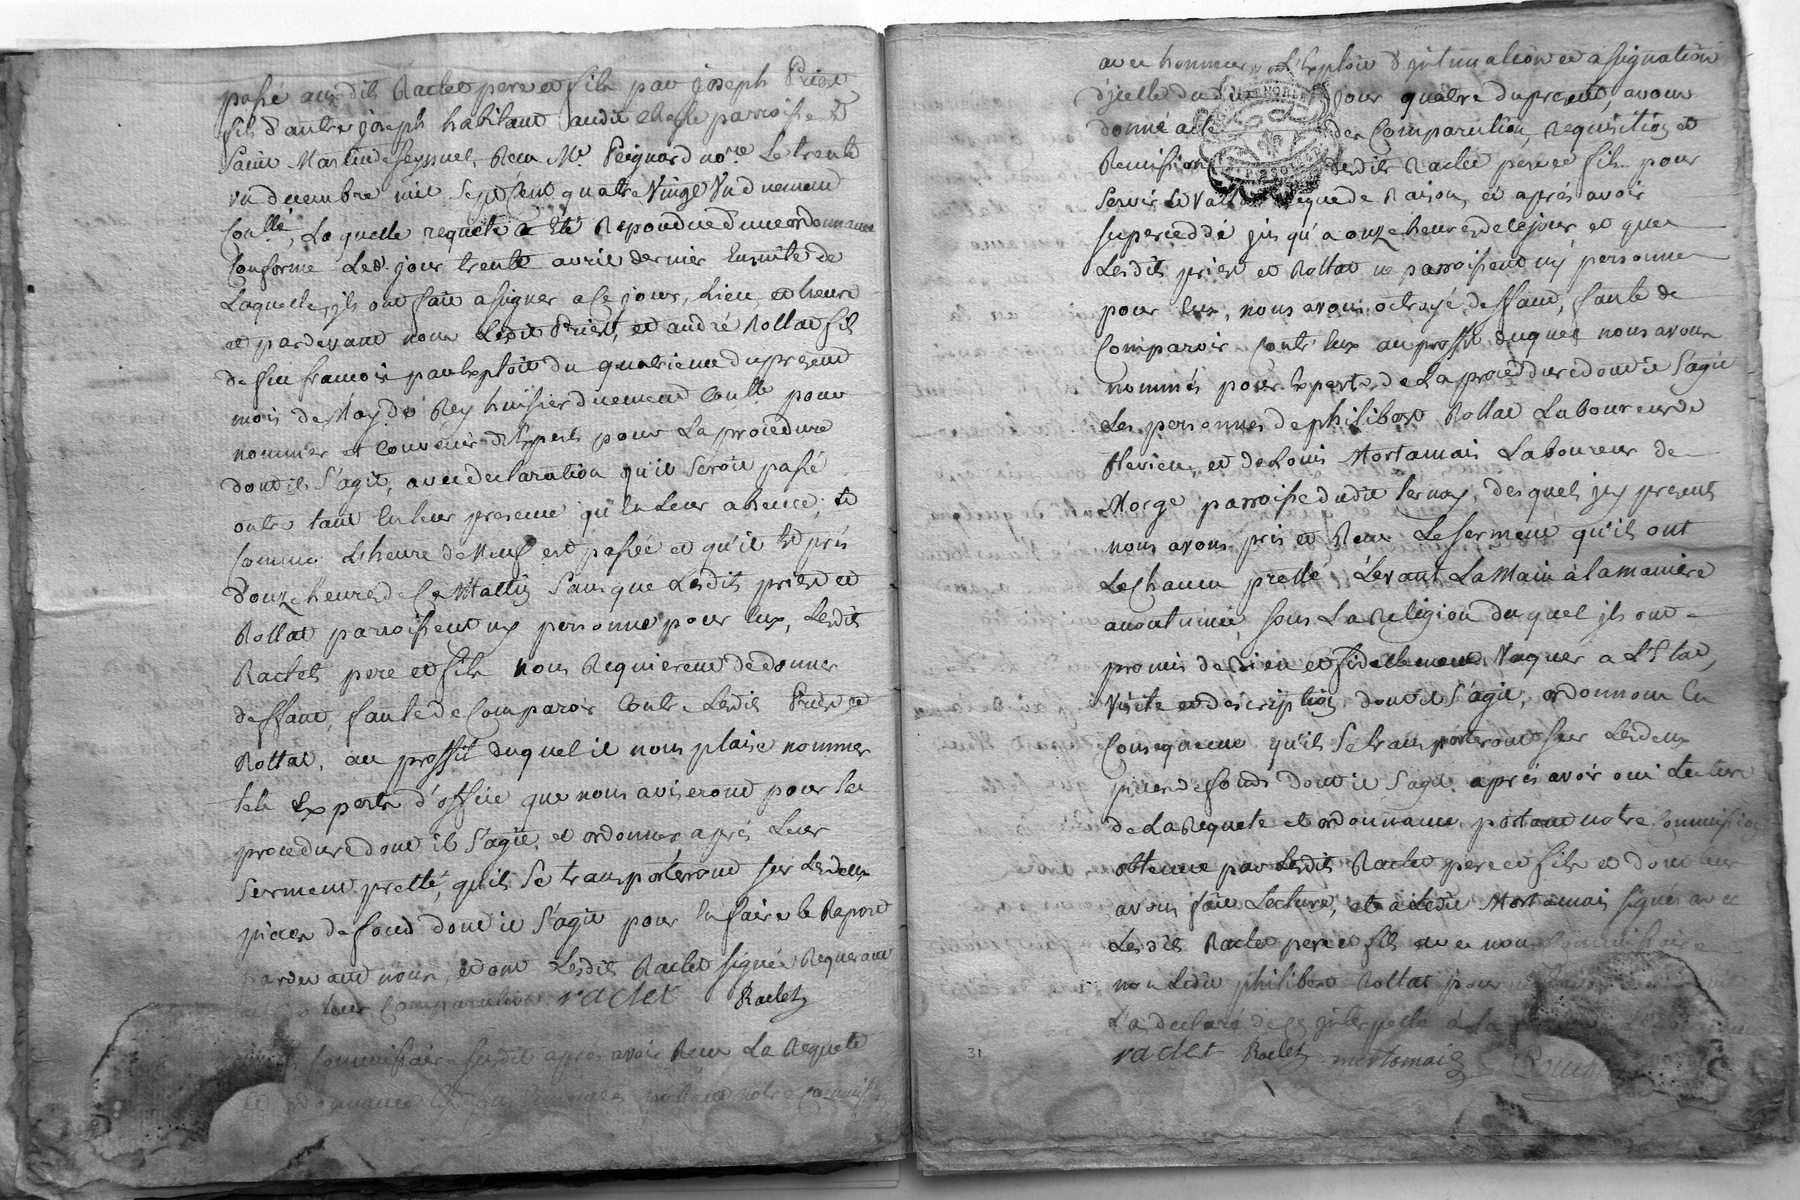 passé auxdits Raclet pere et fils par joseph Priest
fils d'autre joseph habitant audit parroisse de
Saint Martin de Seyssuel, Reçu Me. Peignard nore. Le trente
un decembre mil Sept Cent quatre Vingt Un duement
Coullé, La quelle requete a Eté Repondue d'une ordonnance
Conforme Led. jour trente avril dernier Ensuite de
Laquelle jls ont fait assigner a Ce jour, Lieu et heure
et pardevant nous Ledit Priest, et andré Rollat fils
de feu francois par Exploit du quatrieme du present
mois de May de Rey huissier duement Coullé pour
nommer et Convenir d'Experts pour La procedure
dont il S'agit, avec declaration qu'il Seroit passé
outre tant En leur presence qu'En Leur absence, et
Comme L'heure de Neuf est passée et qu'il Est près
d'onze heures de Ce Mattin Sans que Lesdits priest et
Rollat parroissent ny personne pour Eux, Lesdits
Raclet pere et fils nous Requierent de donner
deffaut, faute de Comparoir Contre Lesdits Priest et
Rollat, au proffit duquel il nous plaise nommer
tels Experts d'office que nous aviserons pour La
procedure dont il S'agit, et ordonner, après Leur
Serment pretté, qu'ils Se transporteront Sur Les deux
pieces de fond dont il S'agit pour En faire le Raport
pardevant nous, et ont Lesdits Raclet signé Requerant
leur Comparution. raclet Raclet
Commissaire Susdit après avoir Reçu La Requete
portant notre Commission
avec honneur, L'Exploit d'jntimation et assignation
d'jcelle dudit jour quatre du present, avons
donné acte des Comparution, Requisition et
Remission desdits Raclet pere et fils pour
Servir et Valloir Ce que de Raison, et après avoir
supercedé jusqu'a onze heures de Ce jour, et que
Lesdits priest et Rollat ne parroissent ny personne
pour Eux, nous avons octroyé deffaut, faute de
Comparoir Contr'Eux au proffit duquel nous avons
nommés pour Experts de La procedure dont il S'agit
Les personnes de philibert Rollat Laboureur de
flevieu, et de Louis Mortamais Laboureur de
Morge parroisse dudit Ternay, desquels jcy presents
nous avons pris et Reçu Le serment qu'ils ont
Le Chacun pretté Levant La Main à la maniere
accoutumée, sous La Religion duquel jls ont
promis de Bien et fidellement Vaquer a L'Etat,
Visite et description dont il S'agit, ordonnons En
Consequence qu'ils Se transporteront sur Les deux
pieces de fonds dont il S'agit, après avoir oui Lecture
de La Requete et ordonnance portant notre Commission
obtenue par Lesdits Raclet pere et fils et dont leur
avons faite Lecture, et a Ledit Mortamais signés avec
Lesdits Raclet pere et fils avec nous Commissaire
non Ledit philibert Rollat pour ne
L'a declaré de Ce jnterpellé à La
raclet Raclet mortamais
31